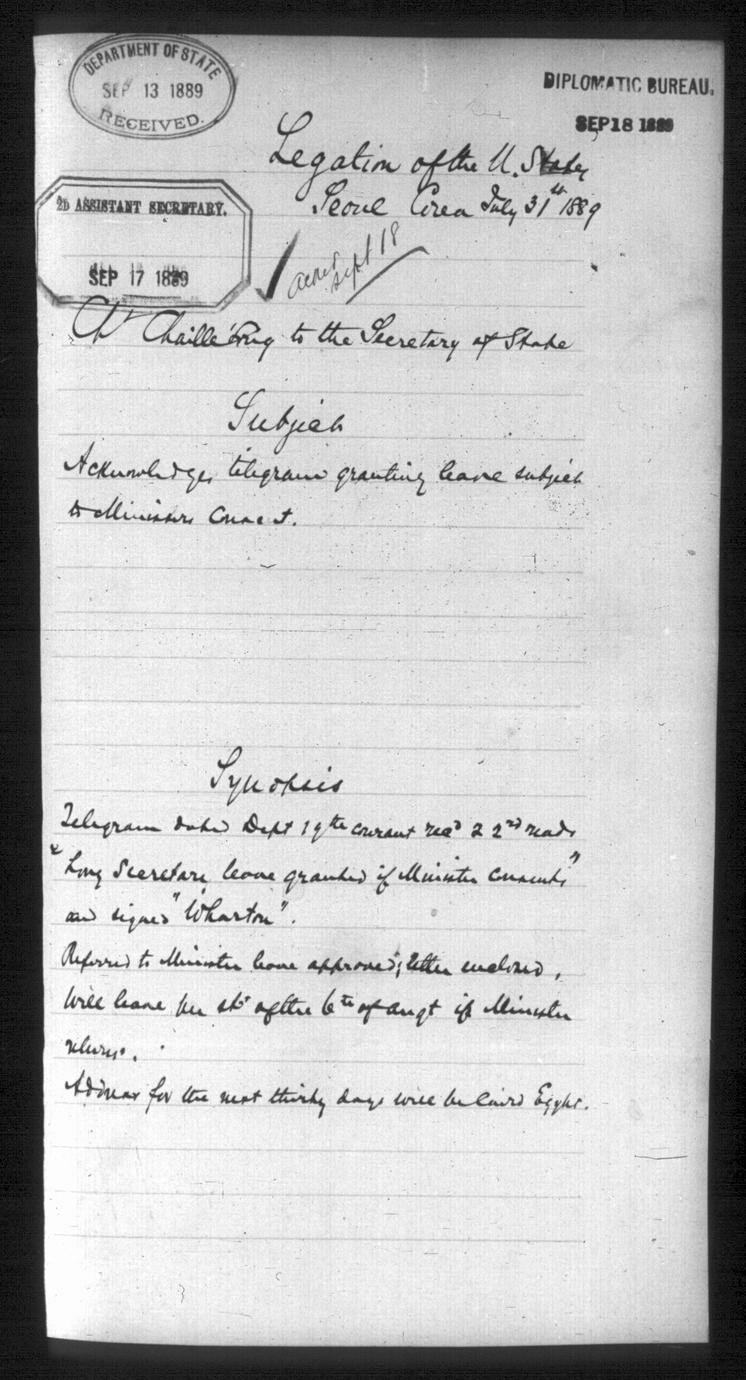 DEPARTMENT OF STATE
SEP 13 1889
RECEIVED.
DIPLOMATIC BUREAU.
SEP 18 1889
Legation of the U. States
Seoul Corea July 31st 1889
2D ASSISTANT SECRETARY.
SEP 17 1889
Sept 18
Ch Chaillé Long to the Secretary of State
Subject
Acknowledges telegram granting leave subject
to Ministers Consent.
Synopsis
Telegram dated Dept 19th courant recd 22nd reads
"Long Secretary leave granted if Minister consents"
and signed "Wharton".
Referred to Minister leave approved; letter enclosed,
Will leave per str of the 6th of Augt if Minister
returns.
Address for the next thirty days will be Cairo Egypt.